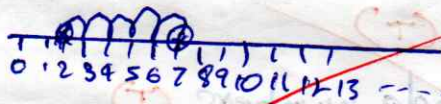 0 1 2 3 4 5 6 7 8 9 10 11 12 13 ---